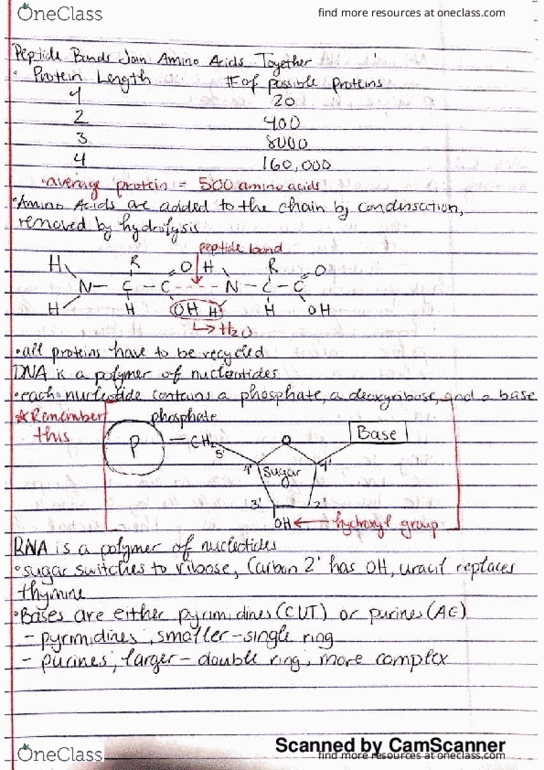 OneClass
find more resources at oneclass.com
Peptide Bonds Join Amino Acids Together
• Protein Length # of possible proteins
1 20
2 400
3 8000
4 160,000
• average protein = 500 amino acids
• Amino Acids are added to the chain by condensation,
removed by hydrolysis
peptide bond
H R O H R O
N - C - C - - - N - C - C
H H OH H H OH
→ H2O
• all proteins have to be recycled
DNA is a polymer of nucleotides
• each nucleotide contains a phosphate, a deoxyribose, and a base
★Remember phosphate
this
P - CH2 O Base
5'
4' Sugar 1'
3' 2'
OH ← hydroxyl group
RNA is a polymer of nucleotides
• sugar switches to ribose, Carbon 2' has OH, uracil replaces
thymine
• Bases are either pyrimidines (CUT) or purines (AG)
- pyrimidines, smaller - single ring
- purines, larger - double ring, more complex
Scanned by CamScanner
OneClass
find more resources at oneclass.com